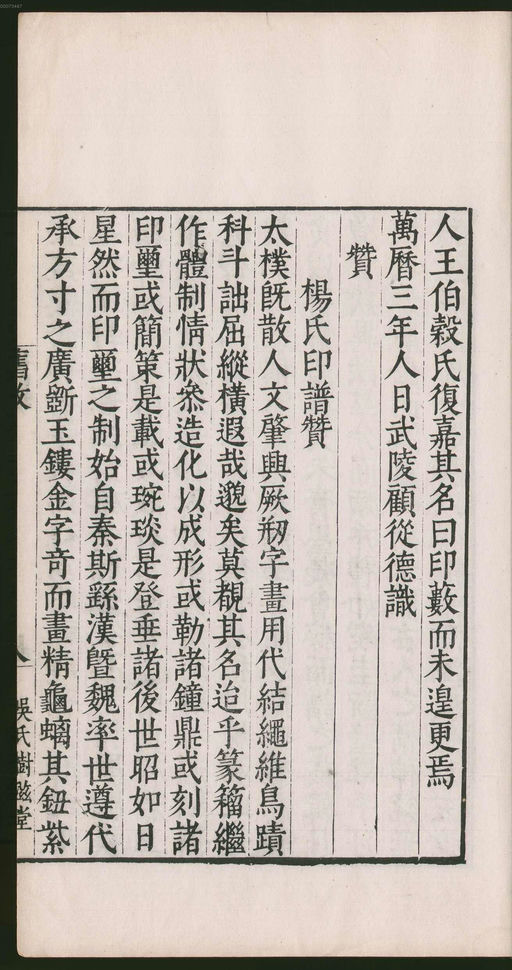 人王伯榖氏復嘉其名曰印藪而未遑更焉
萬曆三年人日武陵顧從德識
贊
楊氏印譜贊
太樸旣散人文肇興厥刱字畫用代結繩維鳥蹟
科斗詘屈縱橫遐哉邈矣莫覩其名迨乎篆籀繼
作體制情狀叅造化以成形或勒諸鐘鼎或刻諸
印璽或簡策是載或琬琰是登垂諸後世昭如日
星然而印璽之制始自秦斯繇漢曁魏率世遵代
承方寸之廣斵玉鏤金字竒而畫精龜螭其鈕紫
舊敘
八
吳氏樹滋堂
00073447